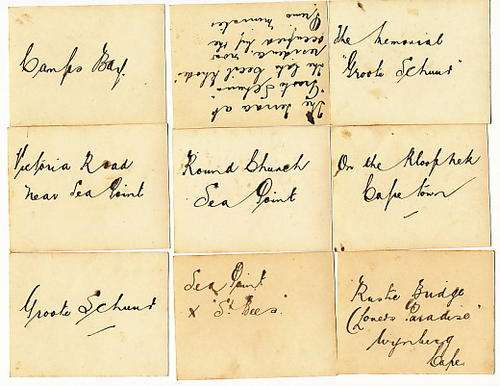 Camps Bay.
The terrace at
"Groote Schuur"
the late Cecil Rhodes'
residence, now
occupied by the
Prime Minister
The Memorial
"Groote Schuur"
Victoria Road
near Sea Point
Round Church
Sea Point
On the Kloof Nek
Cape Town
Groote Schuur
Sea Point
x "St Bees".
Rustic Bridge
("Lovers Paradise"
Wynberg
Cape